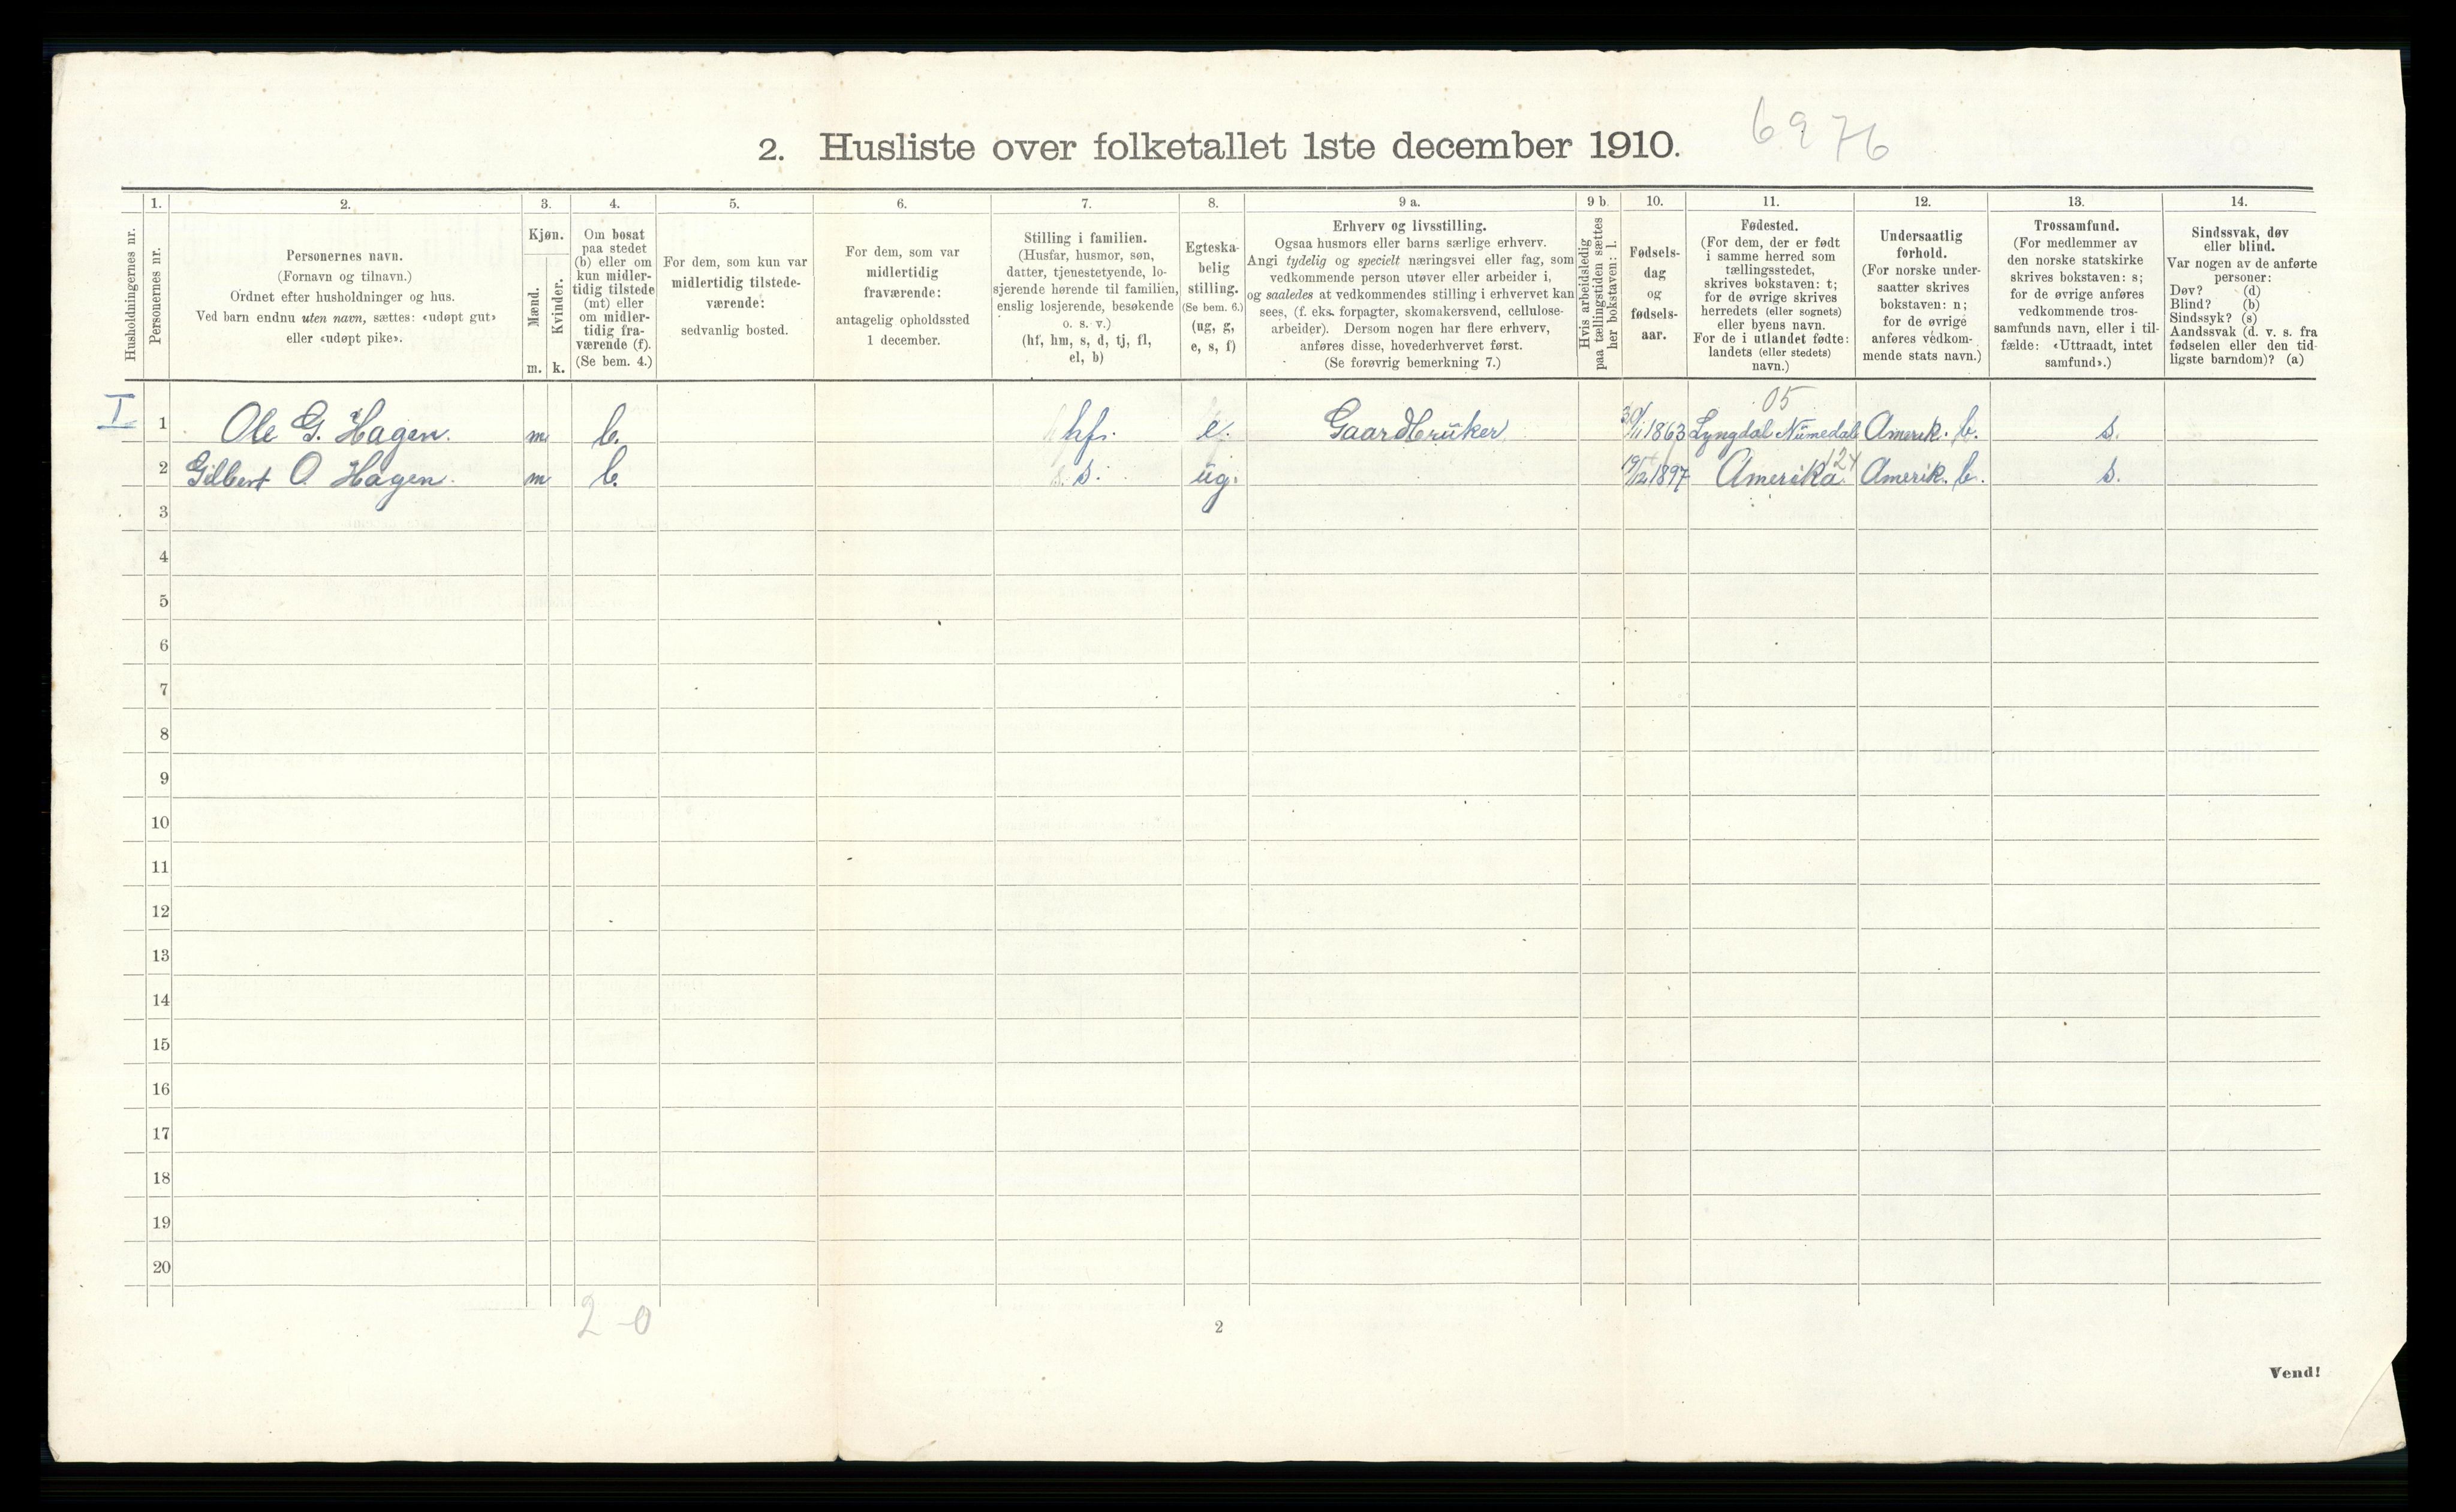 2. Husliste over folketallet 1ste december 1910.
6976
Husholdningernes nr.
1.
Personernes nr.
2.
Personernes navn.
(Fornavn og tilnavn.)
Ordnet efter husholdninger og hus.
Ved barn endnu uten navn, sættes: «udøpt gut»
eller «udøpt pike».
3.
Kjøn.
Mænd.
Kvinder.
m. k.
4.
Om bosat
paa stedet
(b) eller om
kun midler-
tidig tilstede
(mt) eller
om midler-
tidig fra-
værende (f).
(Se bem. 4.)
5.
For dem, som kun var
midlertidig tilstede-
værende:
sedvanlig bosted.
6.
For dem, som var
midlertidig
fraværende:
antagelig opholdssted
1 december.
7.
Stilling i familien.
(Husfar, husmor, søn,
datter, tjenestetyende, lo-
sjerende hørende til familien,
enslig losjerende, besøkende
o. s. v.)
(hf, hm, s, d, tj, fl,
el, b)
8.
Egteska-
belig
stilling.
(Se bem. 6.)
(ug, g,
e, s, f)
9 a.
Erhverv og livsstilling.
Ogsaa husmors eller barns særlige erhverv.
Angi tydelig og specielt næringsvei eller fag, som
vedkommende person utøver eller arbeider i,
og saaledes at vedkommendes stilling i erhvervet kan
sees, (f. eks. forpagter, skomakersvend, cellulose-
arbeider). Dersom nogen har flere erhverv,
anføres disse, hovederhvervet først.
(Se forøvrig bemerkning 7.)
9 b.
Hvis arbeidsledig
paa tællingstiden sættes
her bokstaven: l.
10.
Fødsels-
dag
og
fødsels-
aar.
11.
Fødested.
(For dem, der er født
i samme herred som
tællingsstedet,
skrives bokstaven: t;
for de øvrige skrives
herredets (eller sognets)
eller byens navn.
For de i utlandet fødte:
landets (eller stedets)
navn.)
12.
Undersaatlig
forhold.
(For norske under-
saatter skrives
bokstaven: n;
for de øvrige
anføres vedkom-
mende stats navn.)
13.
Trossamfund.
(For medlemmer av
den norske statskirke
skrives bokstaven: s;
for de øvrige anføres
vedkommende tros-
samfunds navn, eller i til-
fælde: «Uttraadt, intet
samfund».)
14.
Sindssvak, døv
eller blind.
Var nogen av de anførte
personer:
Døv? (d)
Blind? (b)
Sindssyk? (s)
Aandssvak (d. v. s. fra
fødselen eller den tid-
ligste barndom)? (a)
05
I 1 Ole G. Hagen. m b. hf. e. Gaardbruker 30/11 1863 Lyngdal Numedal Amerik. b. s.
2 Gilbert O. Hagen. m b. s. ug. 19/12 1897 Amerika 124 Amerik. b. s.
3
4
5
6
7
8
9
10
11
12
13
14
15
16
17
18
19
20
2-0
2
Vend!